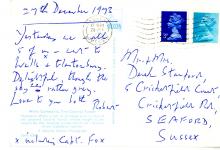 27th December 1973
Yesterday we all
5 of us x went to
Wells & Glastonbury.
Delightful, though the
sky was rather grey.
Love to you both
Robert
x including Capt. Fox
Mr & Mrs
Derek Stanford,
6 Chichester Court,
Chichester Rd,
SEAFORD,
Sussex